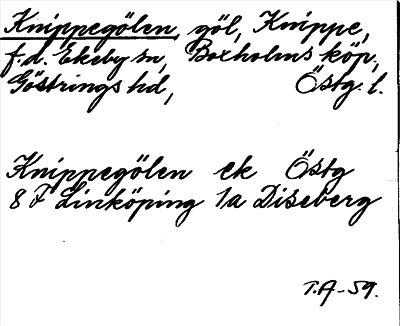 Knippegölen, göl, Knippe,
f.d. Ekeby sn, Boxholms köp,
Göstrings hd, Östg. l.
Knippegölen ek Östg
8 F Linköping 1a Diseberg
T.A-59.